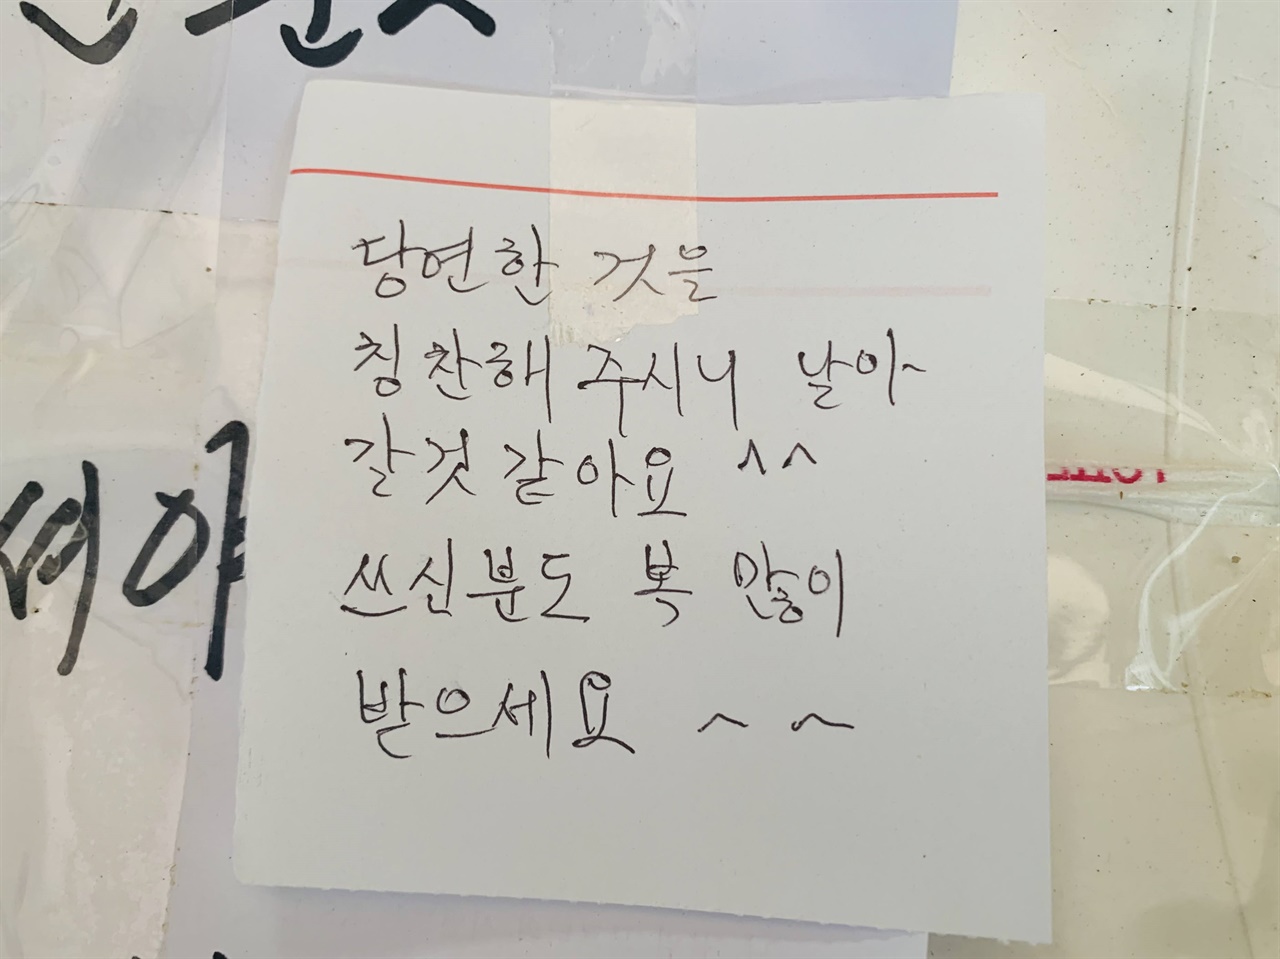 당연한 것을
칭찬해 주시니 날아~
갈것 같아요 ^^
쓰신분도 복 많이
받으세요 ^^